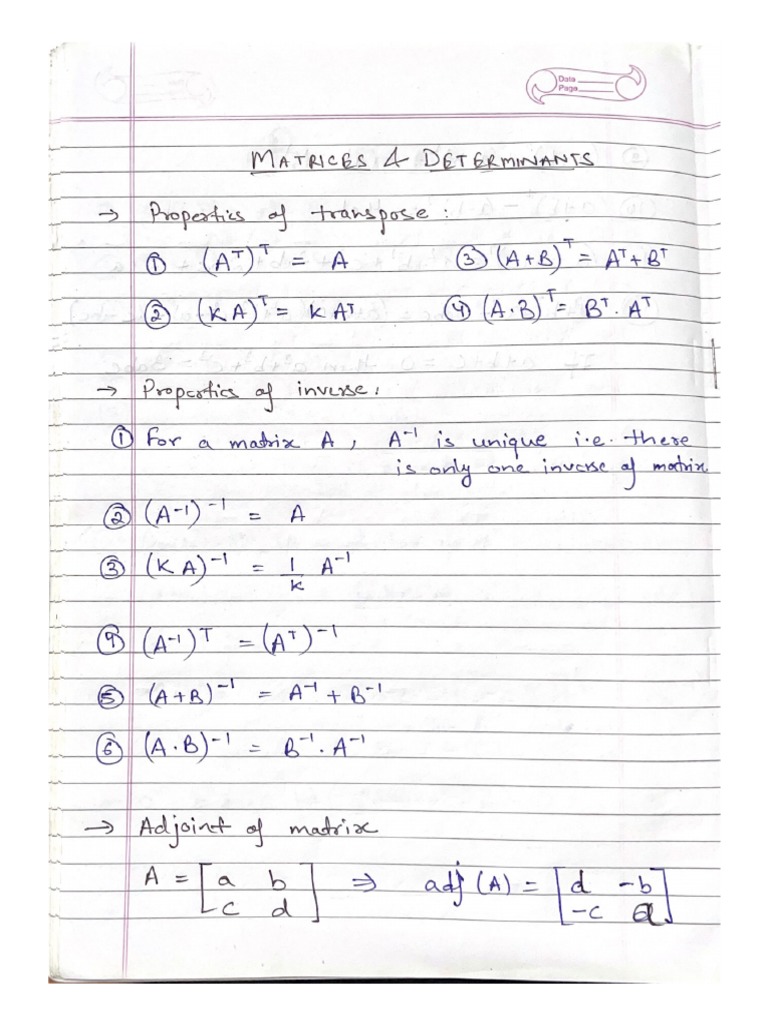 Date
Page
MATRICES & DETERMINANTS
→ Properties of transpose :
① (Aᵀ)ᵀ = A ③ (A+B)ᵀ = Aᵀ + Bᵀ
② (KA)ᵀ = K Aᵀ ④ (A·B)ᵀ = Bᵀ · Aᵀ
→ Properties of inverse.
① For a matrix A , A⁻¹ is unique i.e. there
is only one inverse of matrix
② (A⁻¹)⁻¹ = A
③ (KA)⁻¹ = 1/K A⁻¹
④ (A⁻¹)ᵀ = (Aᵀ)⁻¹
⑤ (A+B)⁻¹ = A⁻¹ + B⁻¹
⑥ (A·B)⁻¹ = B⁻¹ · A⁻¹
→ Adjoint of matrix
A = [a b ⇒ adj (A) = [d -b
c d] -c a]